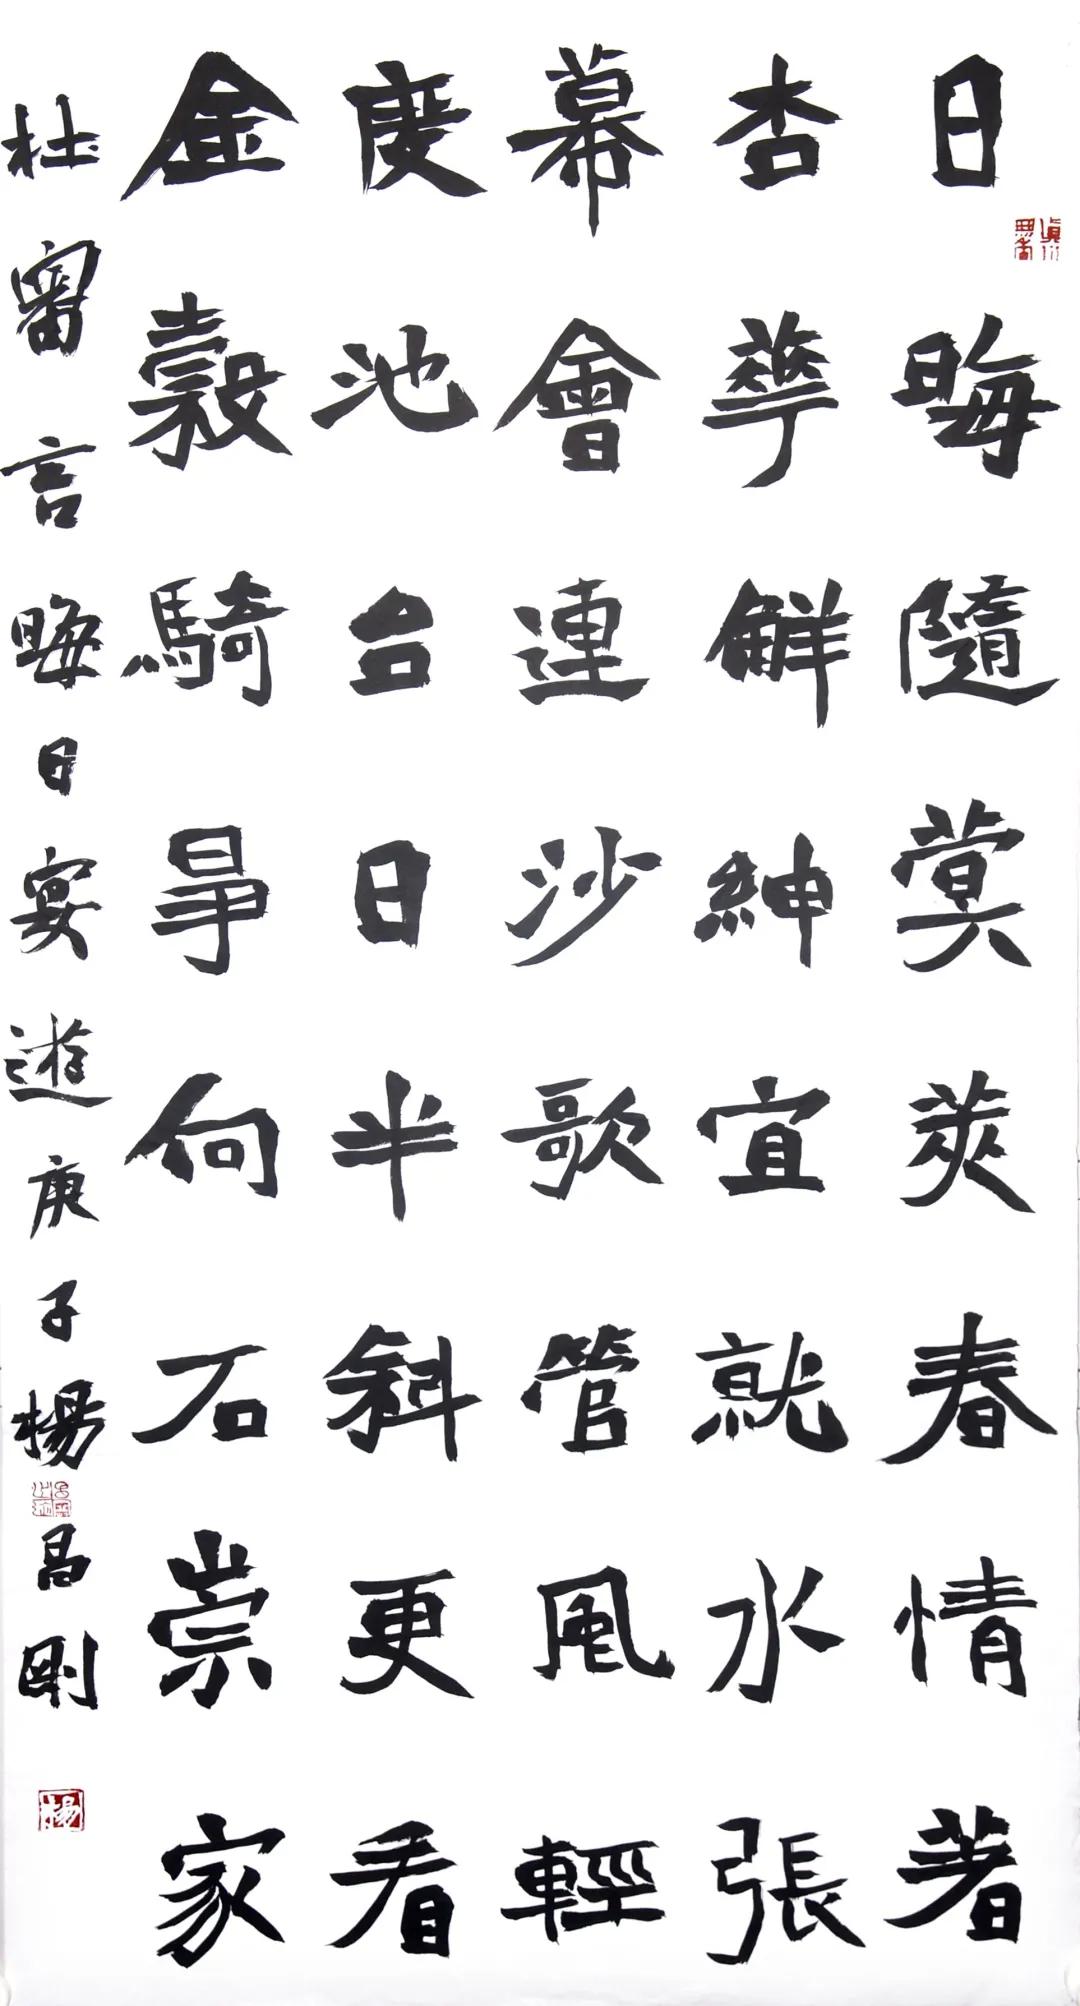 日晦隨蓂莢春情著
杏華觧紳宜就水張
幕會連沙歌管風輕
度池台日半斜更看
金穀騎爭向石崇家
杜審言晦日宴遊庚子楊昌剛
楊